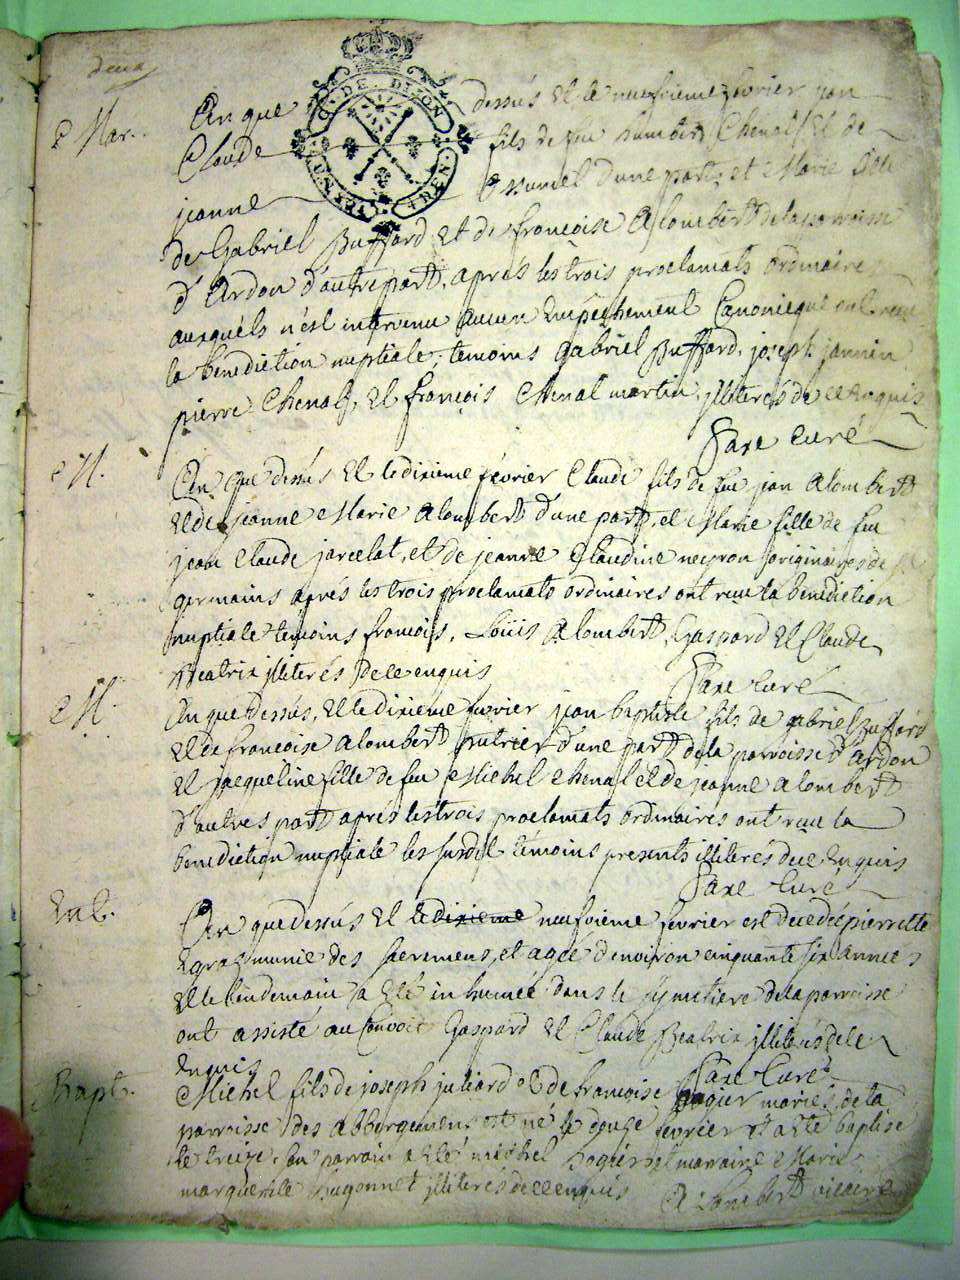 deux
Mar.
An que dessus et le neufvieme fevrier jean
Claude fils de feu humbert Chenal et de
jeanne d'une part, et Marie fille
de Gabriel Buffard et de francoise Alombert de la parroisse
d'Ardon d'autre part, aprés les trois proclamats ordinaire
auxquels n'est intervenu aucun empeschement Canonicque ont reçu
la benediction nuptiale, temoins gabriel Buffard, joseph jannin
pierre Chenal, et françois Chenal martin, illiterés de ce enquis
Faxe curé
M.
An que dessus et le dixieme fevrier Claude fils de feu jean alombert
et de jeanne Marie alombert d'une part, et Marie fille de feu
jean Claude jarcelat, et de jeanne Claudine neyron originaires de St
germains aprés les trois proclamats ordinaires ont reçu la benediction
nuptiale temoins francois, Loüis alombert, Gaspard et Claude
Beatrix illiterés de ce enquis
Faxe Curé
M.
An que dessus, et le dixieme fevrier jean baptiste fils de gabriel Buffard
et de francoise alombert d'une part de la parroisse d'ardon
et jacqueline fille de feu Michel chenal et de jeanne alombert
d'autres part aprés les trois proclamats ordinaires ont reçu la
benediction nuptiale les susdit témoins presents illiterés de ce enquis
Faxe Curé
Ent.
An que dessus et le dixieme neufvieme fevrier est decedée pierrette
munie des sacremens, et agée d'environ cinquante six années
et le lendemain a eté inhumée dans le symetiere de la parroisse
ont assisté au Convoit Gaspard et Claude Beatrix illiterés de ce
enquis
Faxe Curé
Bapt.
Michel fils de joseph juliard et de francoise mariés de la
parroisse des abbergemens est né le douze fevrier et a eté baptisé
le treize. son parrain a eté michel et marraine Marie
margueritte hugonnet illiterés de ce enquis
Alombert vicaire